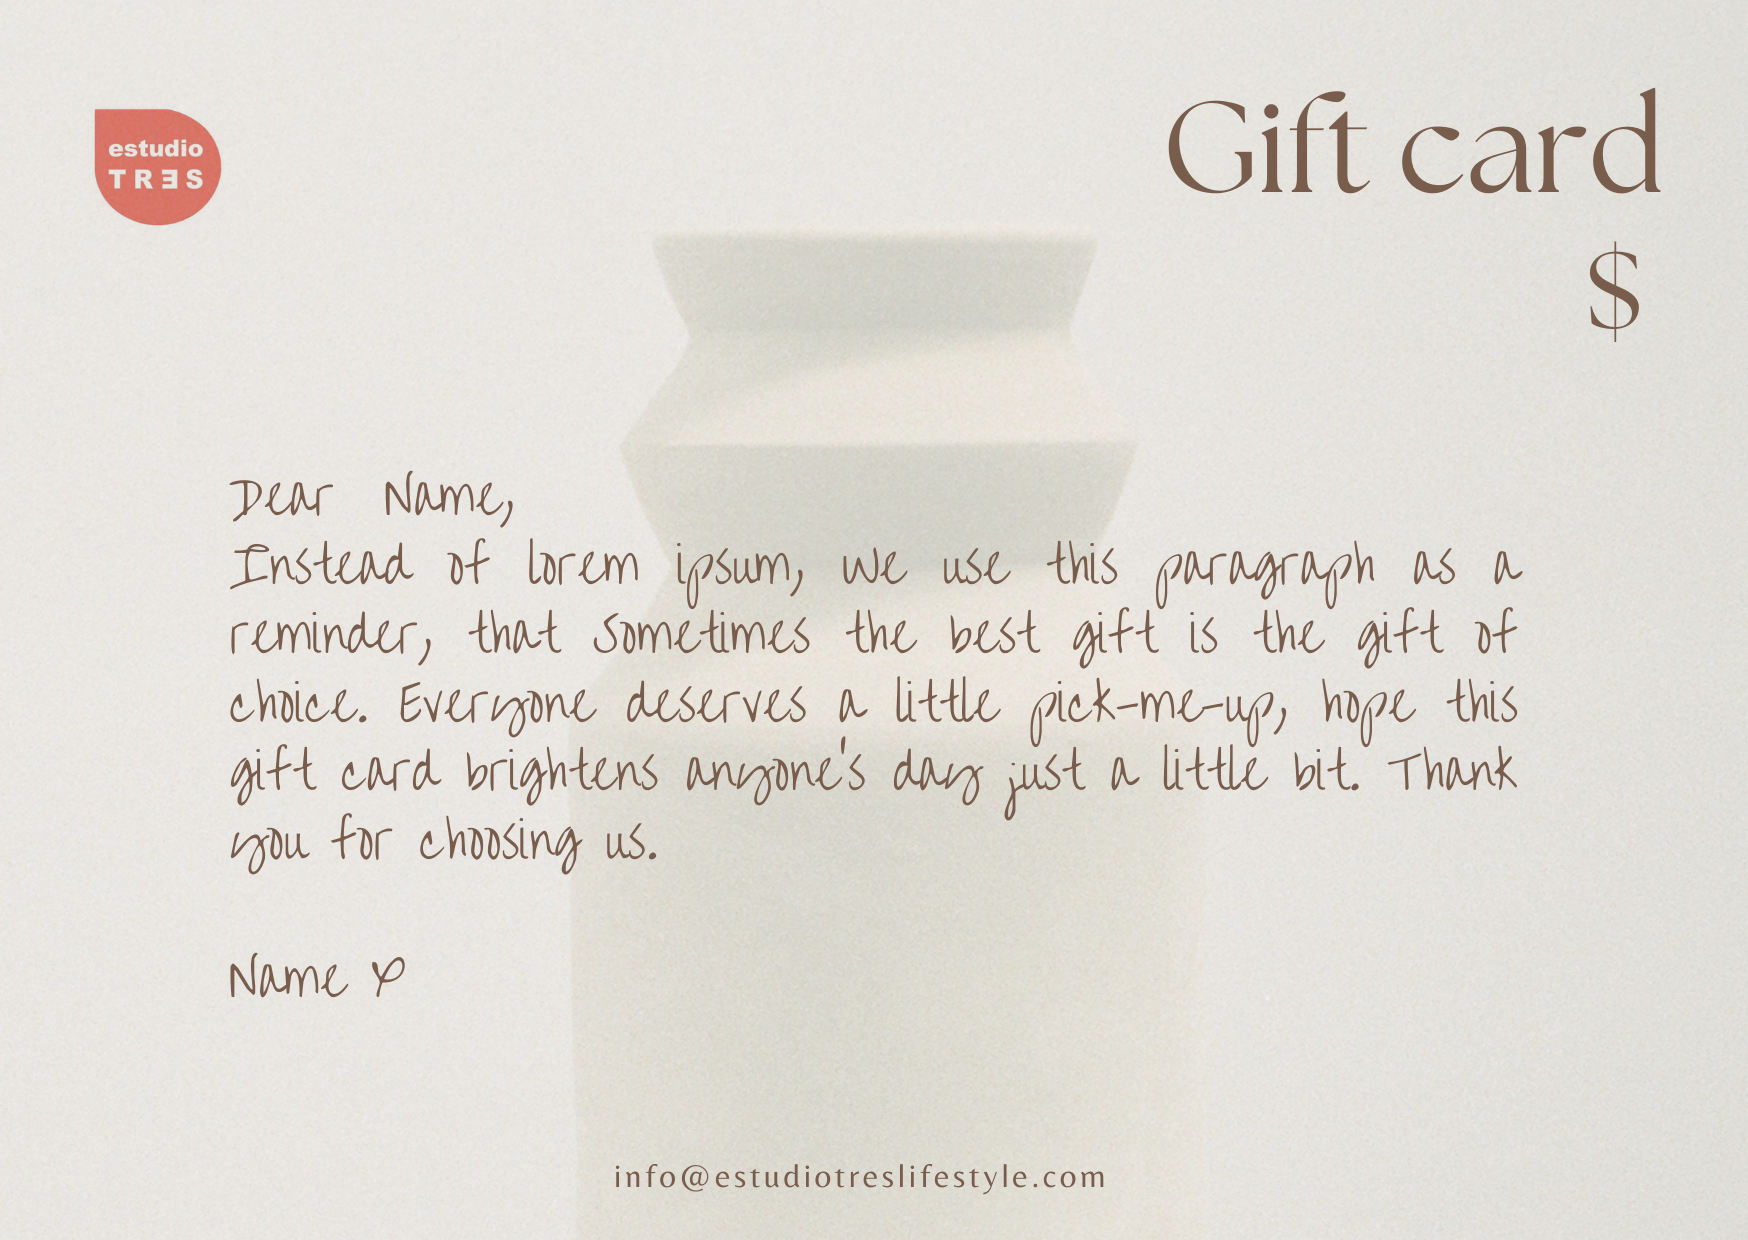 estudio
TRƎS
Gift card
$
Dear Name,
Instead of lorem ipsum, we use this paragraph as a
reminder, that Sometimes the best gift is the gift of
choice. Everyone deserves a little pick-me-up, hope this
gift card brightens anyone's day just a little bit. Thank
you for choosing us.
Name X
info@estudiotreslifestyle.com